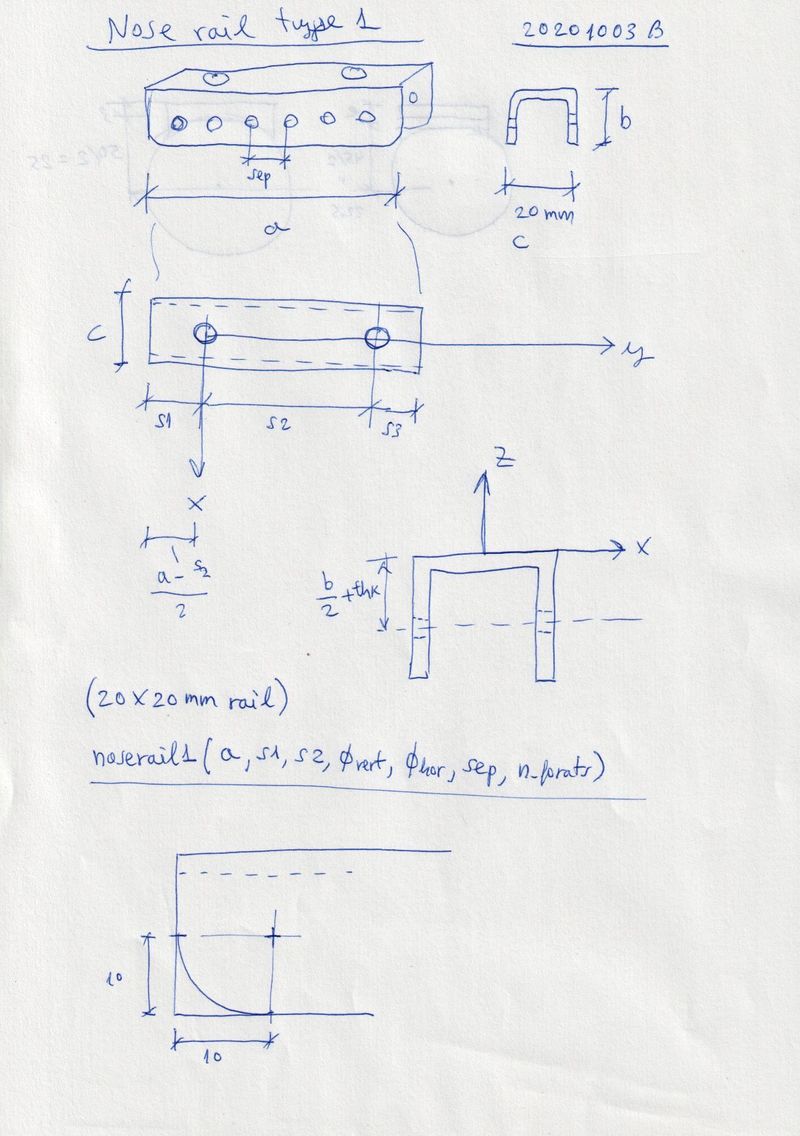 Nose rail type 1
20201003 B
b
sep
20 mm
a
c
c
y
s1
s2
s3
x
z
x
a - s2
2
b
2
+thk
(20 x 20 mm rail)
noserail1 (a, s1, s2, φvert, φhor, sep, n_forats)
10
10